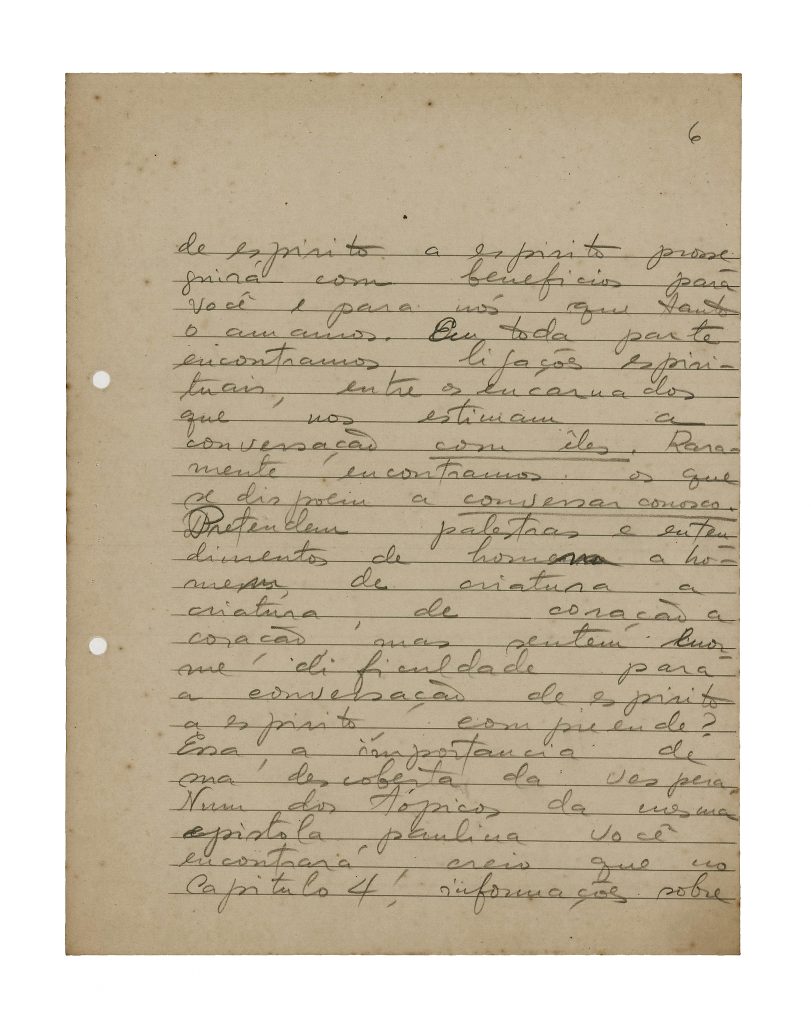 6
de espirito a espirito prosse-
guirá com beneficios para
você e para nós que tanto
o amamos. Em toda parte
encontramos ligações espiri-
tuais, entre os encarnados
que nos estimam a
conversação com êles. Rara-
mente encontramos os que
se dispõem a conversar conosco.
Pretendem palestras e enten
dimentos de homem a ho-
mem, de criatura a
criatura, de coração a
coração, mas sentem enor-
me dificuldade para
a conversação de espirito
a espirito, compreende?
Essa, a importancia de
sua descoberta da vespera.
Num dos tópicos da mesma
epistola paulina você
encontrará, creio que no
Capitulo 4, informações sobre